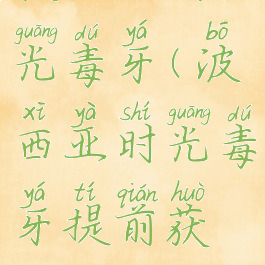 guāng dú yá bō
光毒牙(波
xī yà shí guāng dú
西亚时光毒
yá tí qián huò
牙提前获